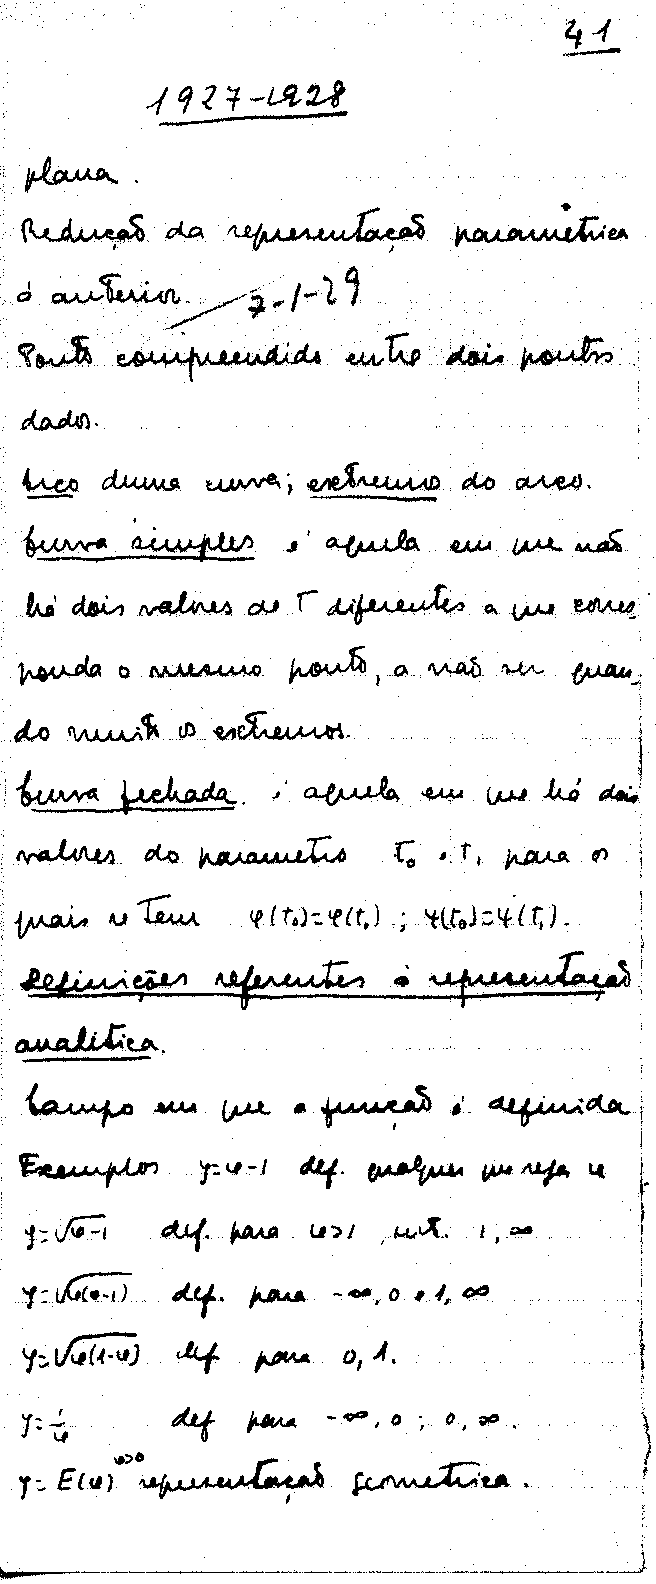 41
1927-1928
plana.
Redução da representação paramétrica
á anterior. 7-1-29
Ponto compreendido entre dois pontos
dados.
Arco duma curva; extremo do arco.
Curva simples é aquela em que não
há dois valores de t diferentes a que corres-
ponda o mesmo ponto, a não ser quan-
do muito os extremos.
Curva fechada é aquela em que há dois
valores do parametro t₀ e t₁ para os
quais se tem φ(t₀)=φ(t₁); ψ(t₀)=ψ(t₁).
Definições referentes á representação
analítica.
Campo em que a função é definida
Exemplos y=x-1 def. qualquer que seja x
y=√x-1 def. para x>1, int. 1,∞
y=√x(x-1) def. para -∞,0 e 1,∞
y=√x(1-x) def para 0,1.
y=1/x def para -∞,0; 0,∞.
y=E(x) x>0 representação geometrica.